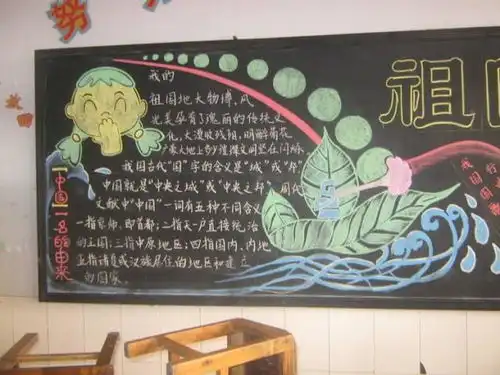 我的
祖国地大物博，风
光美孕育了瑰丽的传统文
化，大漠收残阳，明醉荷花
我国古代“国”字的含义是“城”或“邦”
中国就是“中央之城”或“中央之邦”。周代
文献中“中国”一词有五种不同含义
一指京师，即首都；二指天子直接统治
的王国；三指中原地区；四指国内、内地
五指诸夏或汉族居住的地区和建立
的国家。
“中国”一名的由来
祖国
我国